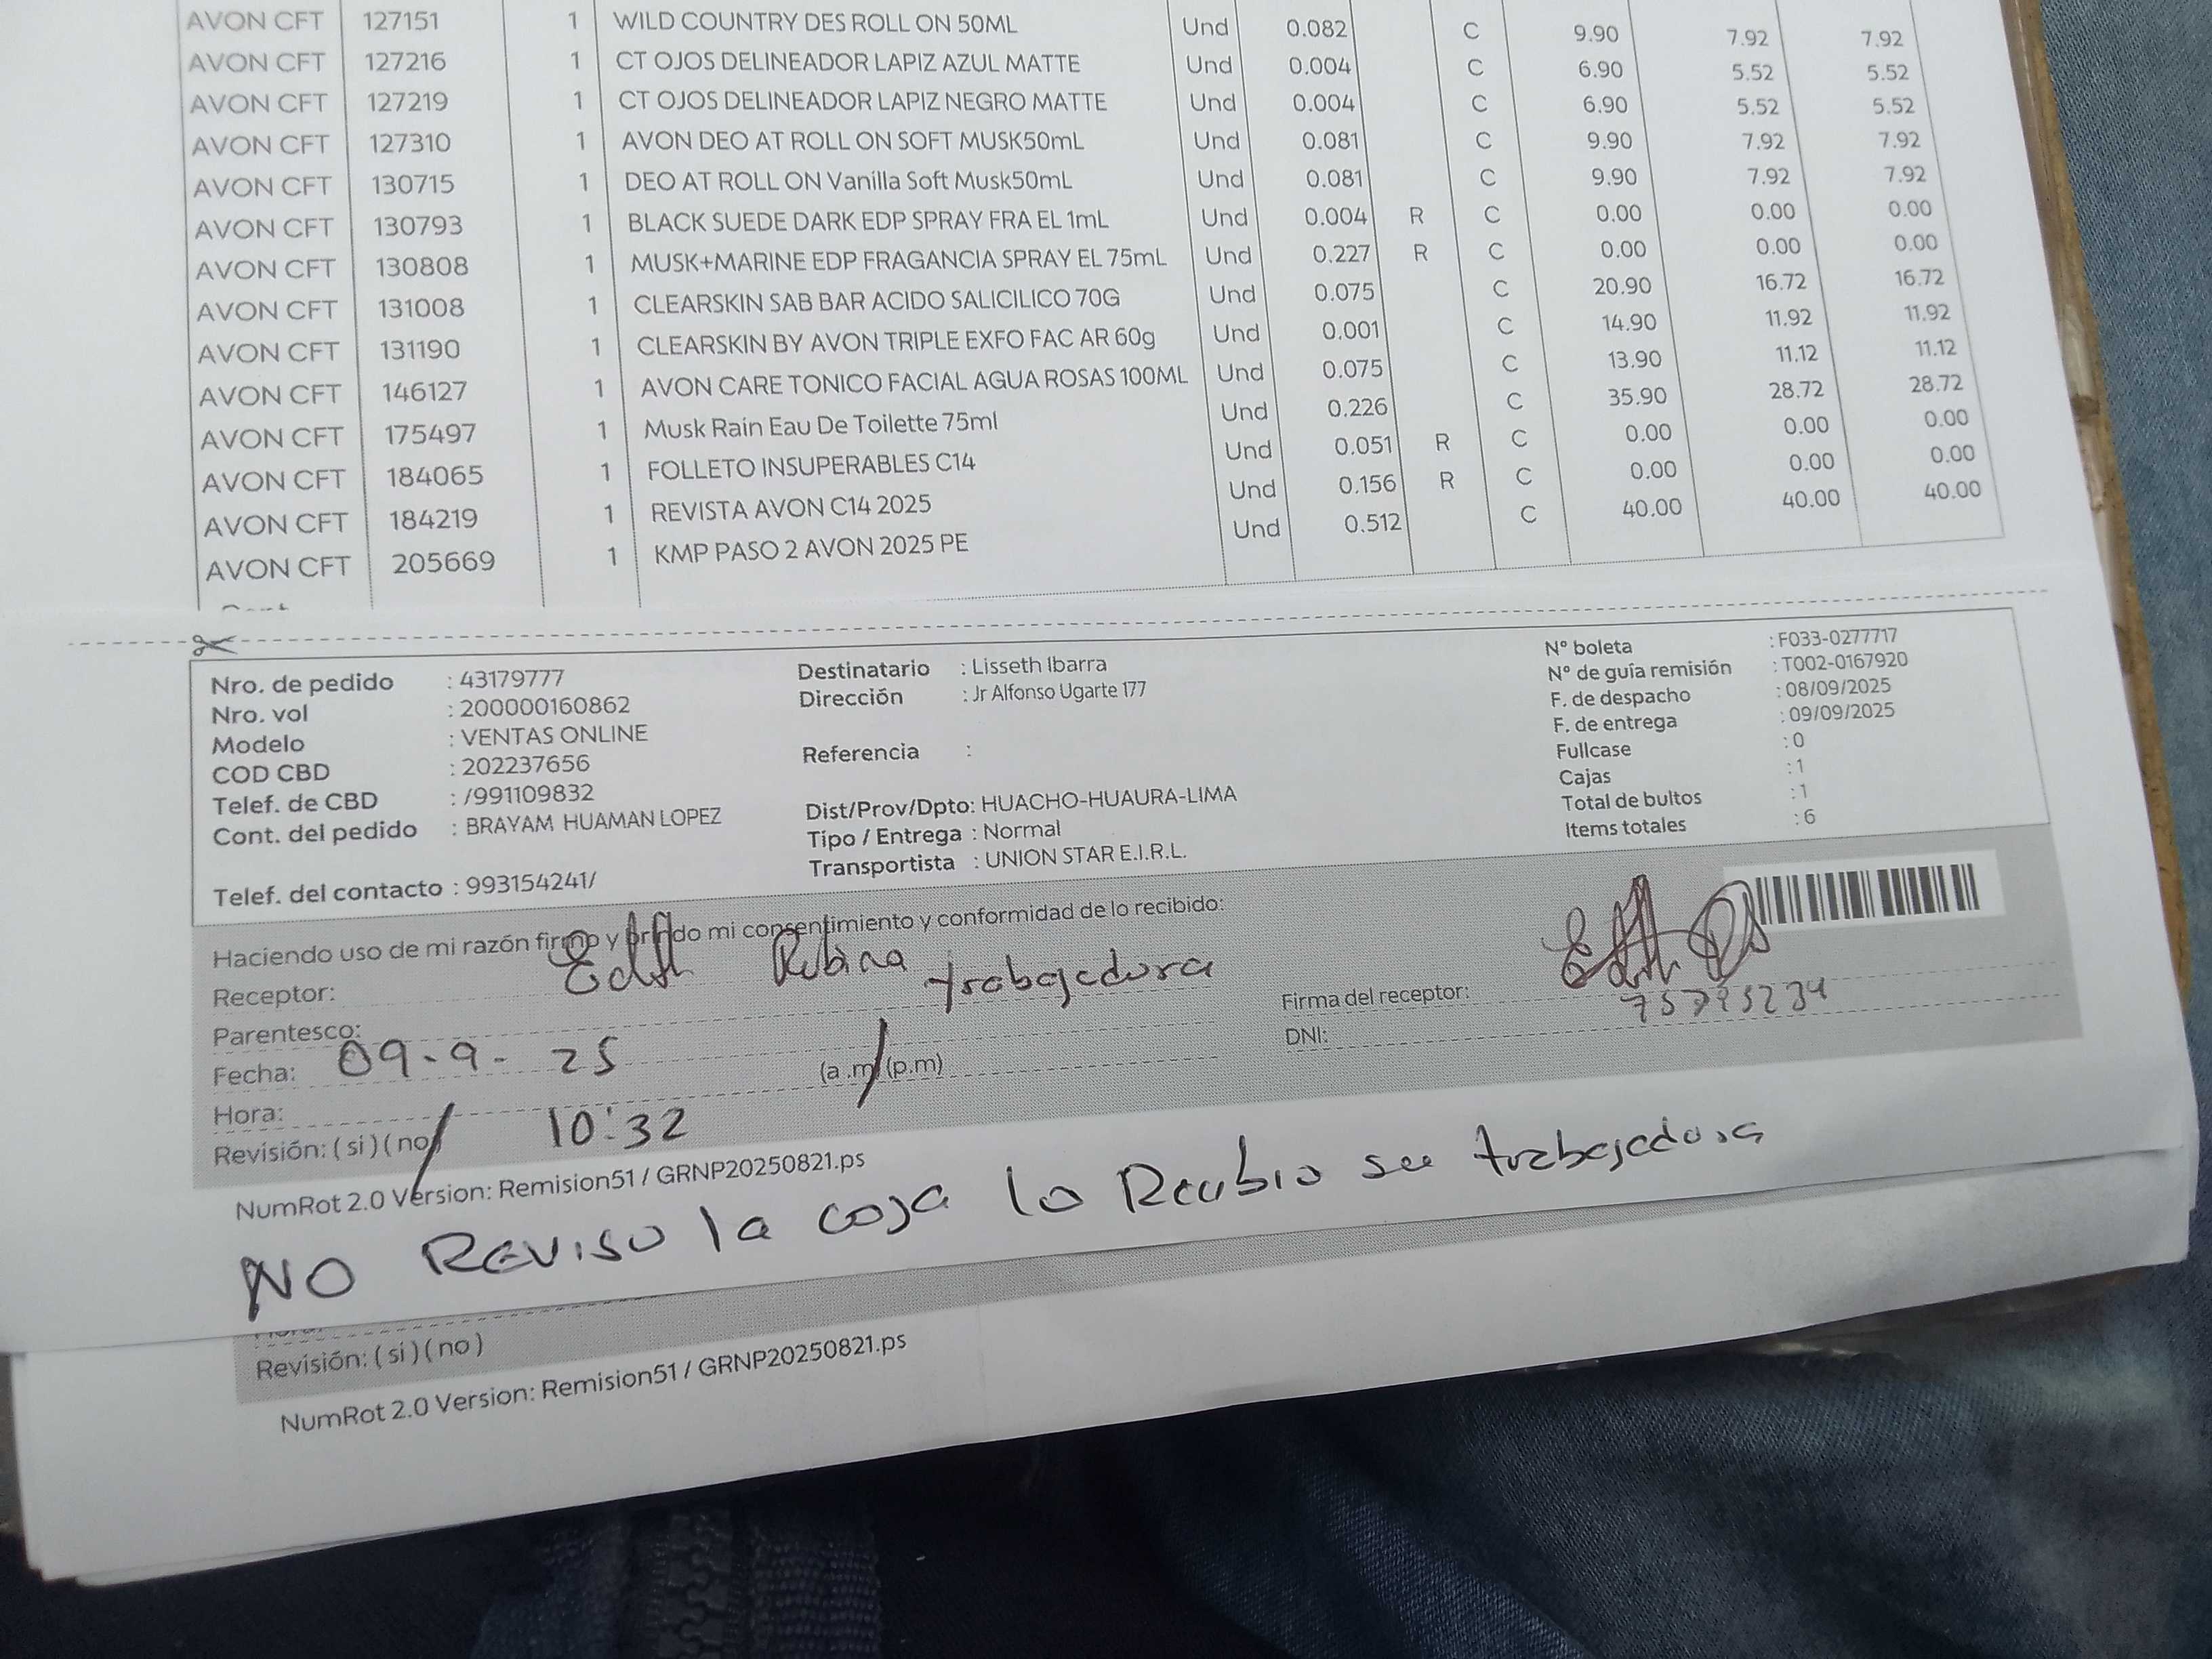 AVON CFT 127151 1 WILD COUNTRY DES ROLL ON 50ML Und 0.082 C 9.90 7.92 7.92
AVON CFT 127216 1 CT OJOS DELINEADOR LAPIZ AZUL MATTE Und 0.004 C 6.90 5.52 5.52
AVON CFT 127219 1 CT OJOS DELINEADOR LAPIZ NEGRO MATTE Und 0.004 C 6.90 5.52 5.52
AVON CFT 127310 1 AVON DEO AT ROLL ON SOFT MUSK50mL Und 0.081 C 9.90 7.92 7.92
AVON CFT 130715 1 DEO AT ROLL ON Vanilla Soft Musk50mL Und 0.081 C 9.90 7.92 7.92
AVON CFT 130793 1 BLACK SUEDE DARK EDP SPRAY FRA EL 1mL Und 0.004 R C 0.00 0.00 0.00
AVON CFT 130808 1 MUSK+MARINE EDP FRAGANCIA SPRAY EL 75mL Und 0.227 R C 0.00 0.00 0.00
AVON CFT 131008 1 CLEARSKIN SAB BAR ACIDO SALICILICO 70G Und 0.075 C 20.90 16.72 16.72
AVON CFT 131190 1 CLEARSKIN BY AVON TRIPLE EXFO FAC AR 60g Und 0.001 C 14.90 11.92 11.92
AVON CFT 146127 1 AVON CARE TONICO FACIAL AGUA ROSAS 100ML Und 0.075 C 13.90 11.12 11.12
AVON CFT 175497 1 Musk Rain Eau De Toilette 75ml Und 0.226 C 35.90 28.72 28.72
AVON CFT 184065 1 FOLLETO INSUPERABLES C14 Und 0.051 R C 0.00 0.00 0.00
AVON CFT 184219 1 REVISTA AVON C14 2025 Und 0.156 R C 0.00 0.00 0.00
AVON CFT 205669 1 KMP PASO 2 AVON 2025 PE Und 0.512 C 40.00 40.00 40.00
Nro. de pedido : 43179777
Nro. vol : 200000160862
Modelo : VENTAS ONLINE
COD CBD : 202237656
Telef. de CBD : /991109832
Cont. del pedido : BRAYAM HUAMAN LOPEZ
Telef. del contacto : 993154241/
Destinatario : Lisseth Ibarra
Dirección : Jr Alfonso Ugarte 177
Referencia :
Dist/Prov/Dpto: HUACHO-HUAURA-LIMA
Tipo / Entrega : Normal
Transportista : UNION STAR E.I.R.L.
N° boleta : F033-0277717
N° de guía remisión : T002-0167920
F. de despacho : 08/09/2025
F. de entrega : 09/09/2025
Fullcase : 0
Cajas : 1
Total de bultos : 1
Items totales : 6
Haciendo uso de mi razón firmo y brindo mi consentimiento y conformidad de lo recibido:
Receptor: Edith Rubina trabajadora
Parentesco:
Fecha: 09-9-25 (a.m) (p.m)
Hora: 10:32
Revisión: (si) (no)
Firma del receptor: Edith
DNI:
NumRot 2.0 Version: Remision51 / GRNP20250821.ps
NO REVISO la caja lo Recibio su trabajadora
Revisión: (si) (no)
NumRot 2.0 Version: Remision51 / GRNP20250821.ps